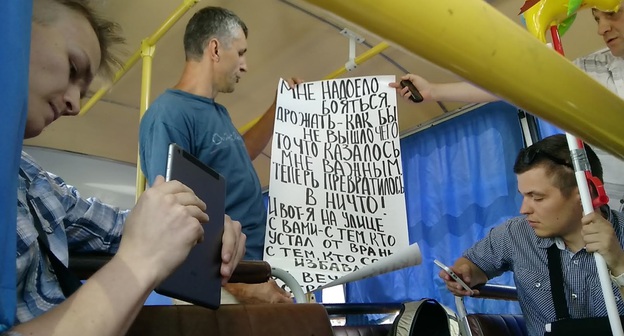 МНЕ НАДОЕЛО
БОЯТЬСЯ,
ДРОЖАТЬ-КАК БЫ
НЕ ВЫШЛО ЧЕГО
ТО ЧТО КАЗАЛОСЬ
МНЕ ВАЖНЫМ
ТЕПЕРЬ ПРЕВРАТИЛОСЬ
В НИЧТО!
И ВОТ-Я НА УЛИЦЕ
С ВАМИ-С ТЕМ, КТО
УСТАЛ ОТ ВРАН
С ТЕМ, КТО СО
ИЗБАВ
ВЕЛ